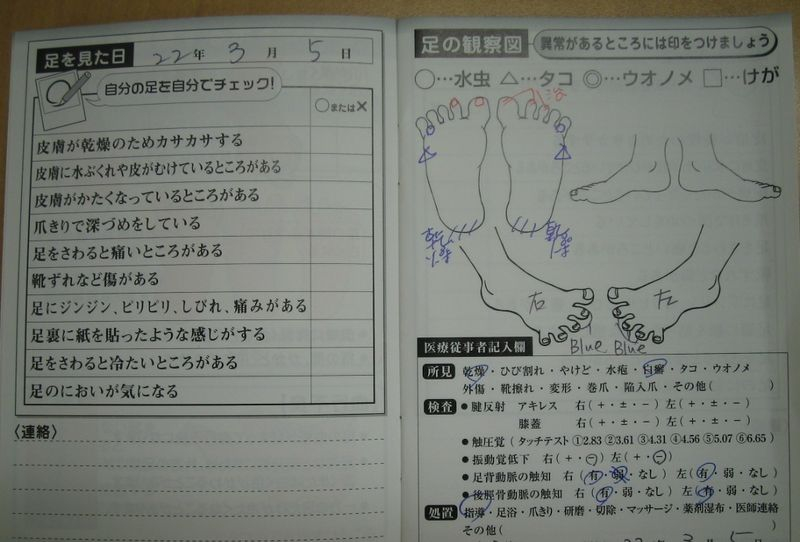 足を見た日 22年 3月 5日
自分の足を自分でチェック!
○または×
皮膚が乾燥のためカサカサする
皮膚に水ぶくれや皮がむけているところがある
皮膚がかたくなっているところがある
爪きりで深づめをしている
足をさわると痛いところがある
靴ずれなど傷がある
足にジンジン、ピリピリ、しびれ、痛みがある
足裏に紙を貼ったような感じがする
足をさわると冷たいところがある
足のにおいが気になる
〈連絡〉
足の観察図 異常があるところには印をつけましょう
○…水虫 △…タコ ◎…ウオノメ □…けが
乾燥
乾燥
右
左
Blue
Blue
医療従事者記入欄
所見 乾燥・ひび割れ・やけど・水疱・白癬・タコ・ウオノメ
外傷・靴擦れ・変形・巻爪・陥入爪・その他( )
検査 ●腱反射 アキレス 右(+・±・−) 左(+・±・−)
膝蓋 右(+・±・−) 左(+・±・−)
●触圧覚(タッチテスト ①2.83 ②3.61 ③4.31 ④4.56 ⑤5.07 ⑥6.65)
●振動覚低下 右(+・−) 左(+・−)
●足背動脈の触知 右(有・弱・なし) 左(有・弱・なし)
●後脛骨動脈の触知 右(有・弱・なし) 左(有・弱・なし)
処置 指導・足浴・爪きり・研磨・切除・マッサージ・薬剤湿布・医師連絡
その他( )
22年 3月 15日